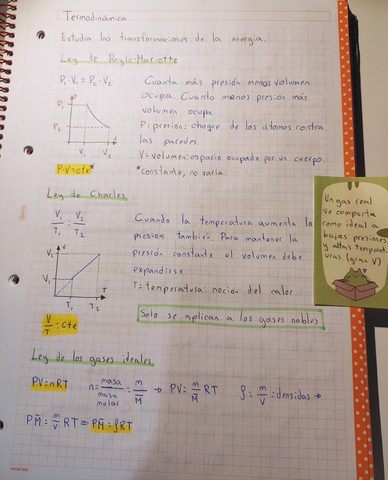 Termodinámica
Estudia las transformaciones de la energía.
Ley de Boyle-Mariotte
P₁·V₁ = P₂·V₂
Cuanta más presión menos volumen
ocupa. Cuanto menos presión más
volumen ocupa
P: presión: choque de los átomos contra
las paredes.
V = volumen: espacio ocupado por un cuerpo.
*constante, no varia.
P₁
P₂
V₁ V₂
P·V = cte*
Ley de Charles
V₁/T₁ = V₂/T₂
Cuando la temperatura aumenta la
presion también. Para mantener la
presión constante el volumen debe
expandirse
T = temperatura: noción del calor
V
V₂
V₁
T₁ T₂
T
V/T = cte
Solo se aplican a los gases nobles
Un gas real
se comporta
como ideal a
bajas presiones
y altas temperat-
uras (gran V)
Ley de los gases ideales
PV = nRT n = masa/masa molar = m/M̄ → PV = m/M̄ RT ρ = m/V = densidad →
PM̄ = m/V RT = PM̄ = ρRT